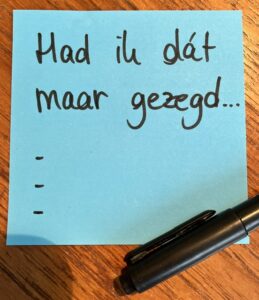 Had ik dát
maar gezegd...
-
-
-